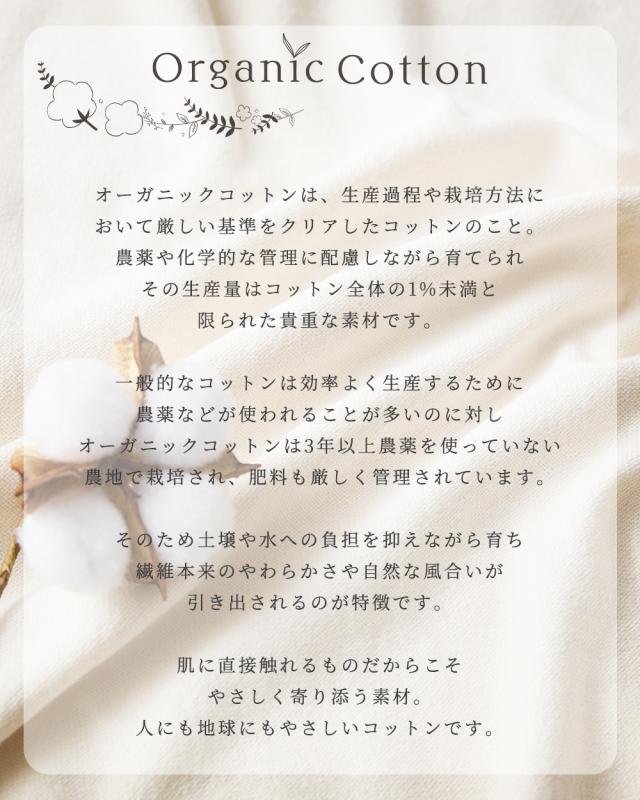 Organic Cotton
オーガニックコットンは、生産過程や栽培方法に
おいて厳しい基準をクリアしたコットンのこと。
農薬や化学的な管理に配慮しながら育てられ
その生産量はコットン全体の1%未満と
限られた貴重な素材です。
一般的なコットンは効率よく生産するために
農薬などが使われることが多いのに対し
オーガニックコットンは3年以上農薬を使っていない
農地で栽培され、肥料も厳しく管理されています。
そのため土壌や水への負担を抑えながら育ち
繊維本来のやわらかさや自然な風合いが
引き出されるのが特徴です。
肌に直接触れるものだからこそ
やさしく寄り添う素材。
人にも地球にもやさしいコットンです。